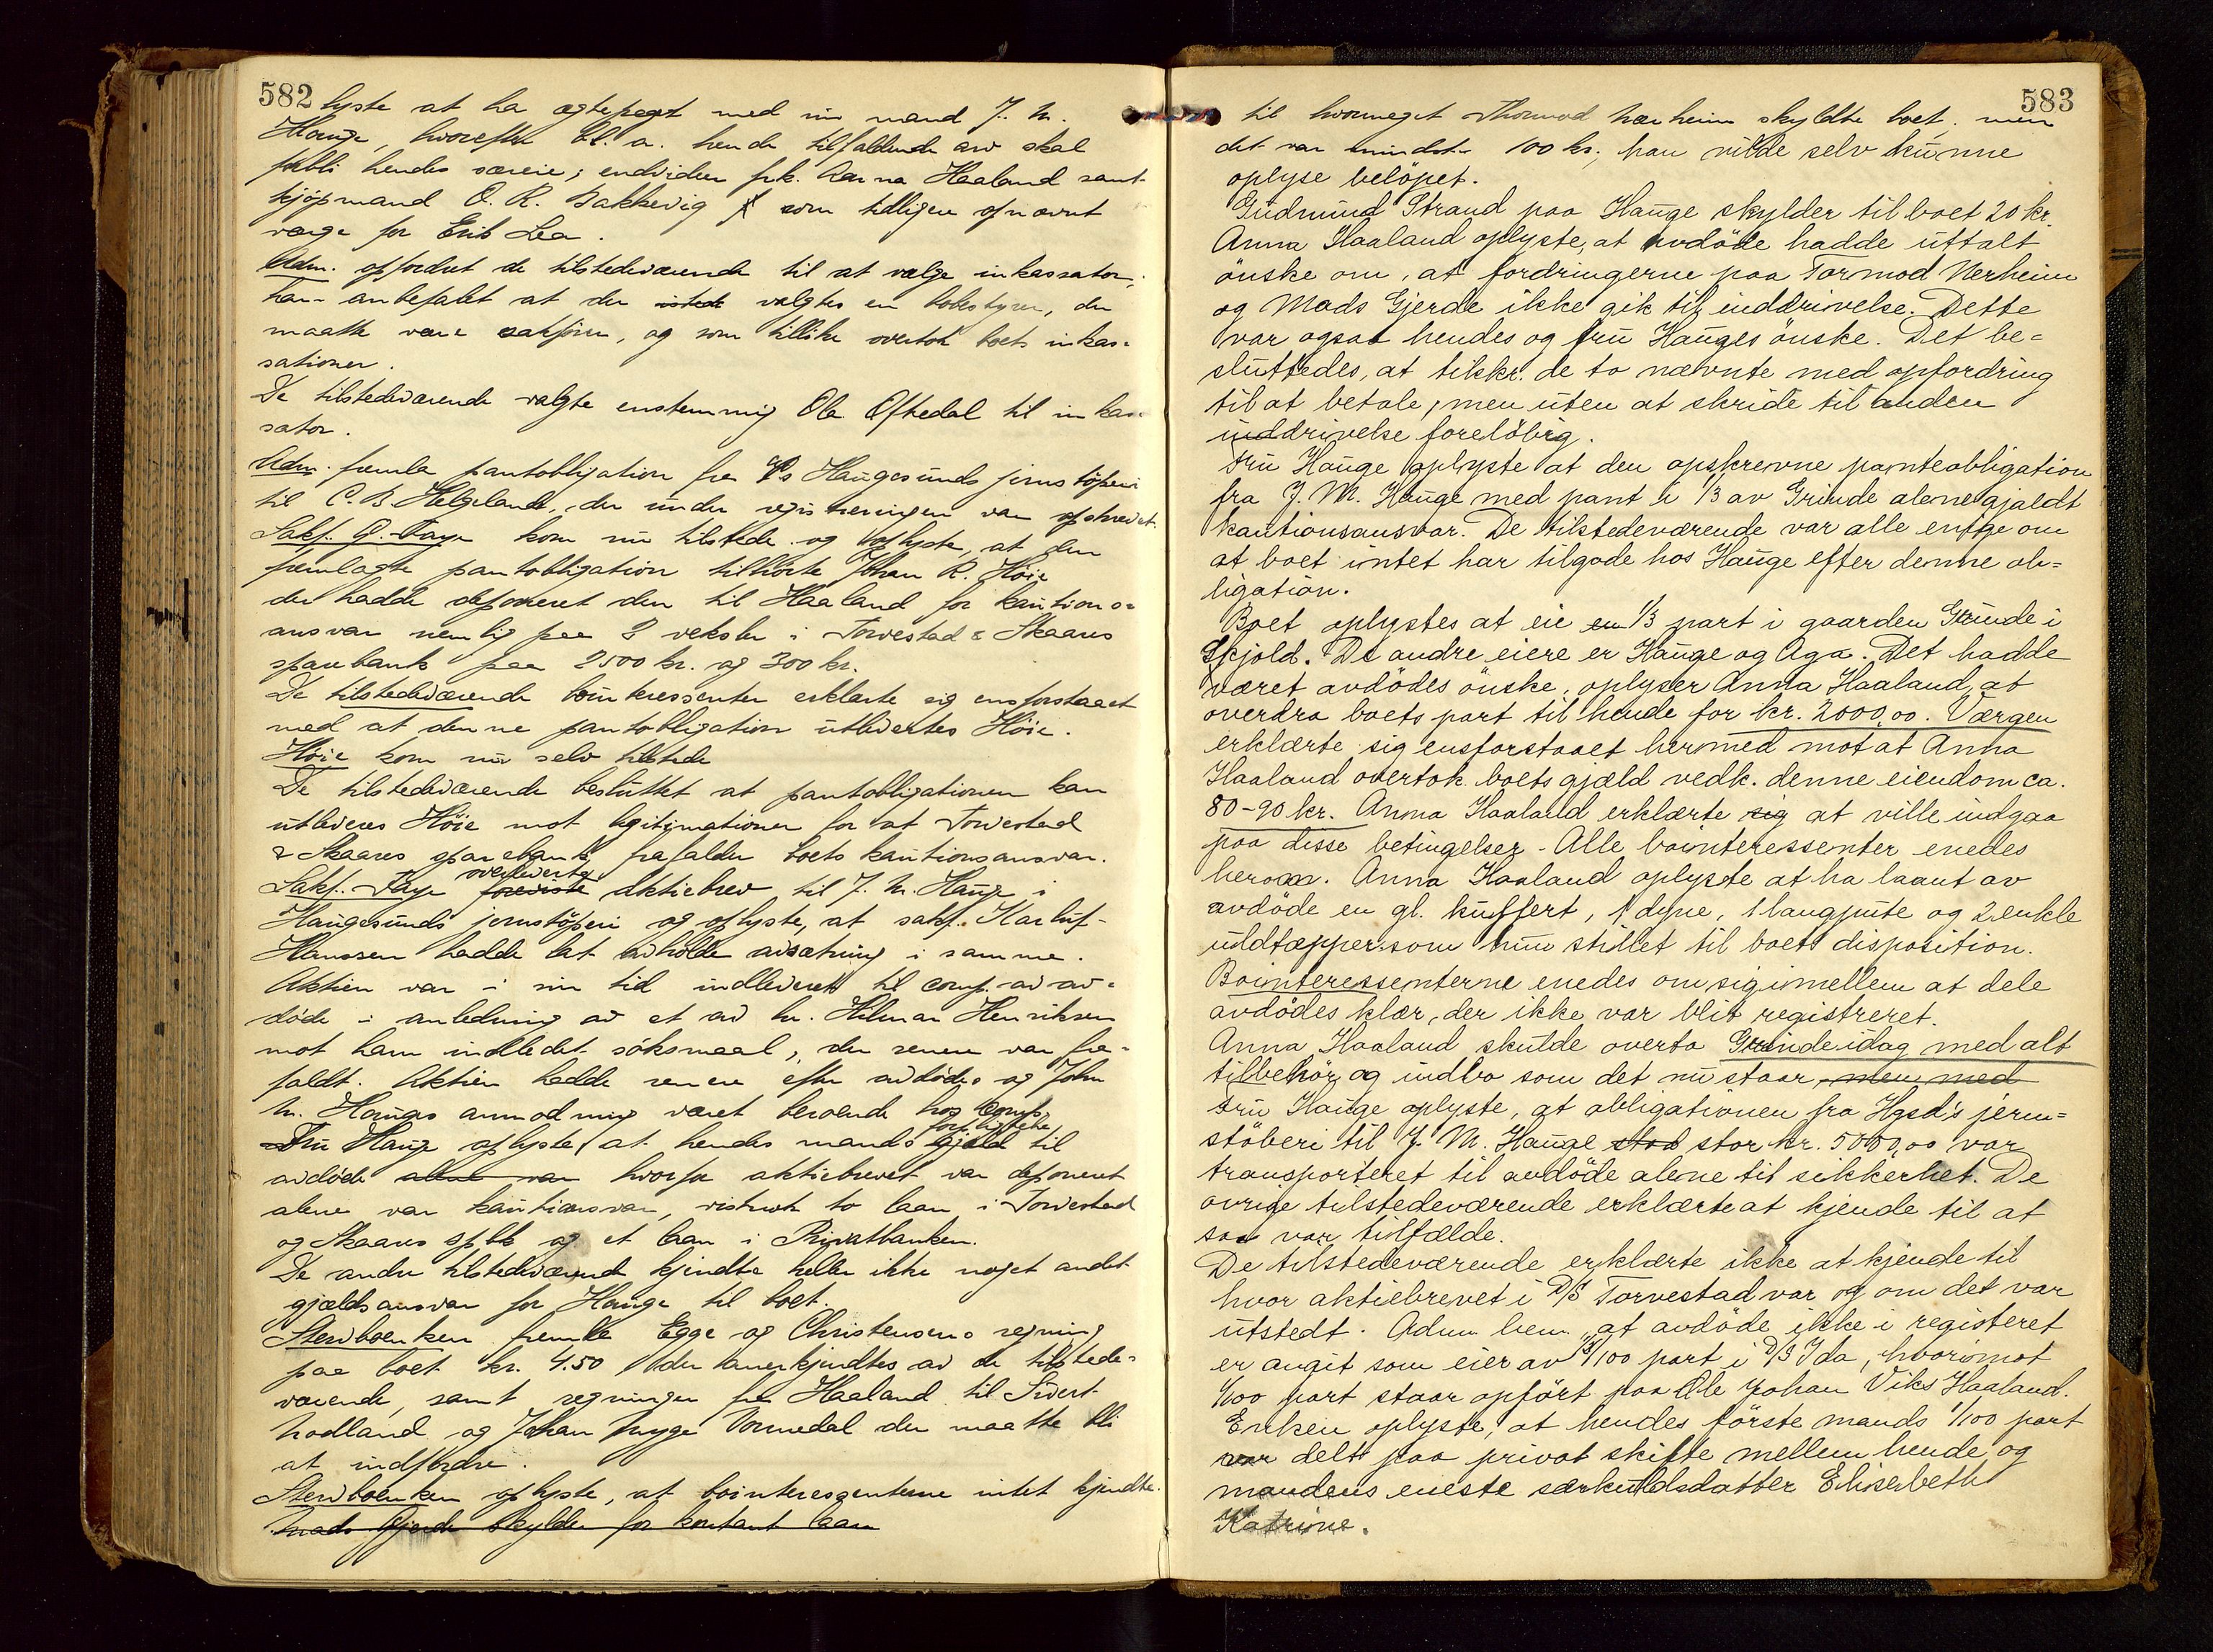 582
lyste at ha ægtepagt med sin mand J. M.
Hauge, hvorefter bl. a. hende tilfaldende arv skal
forbli hendes særeie; endvidere frk. Anna Haaland samt
kjöpmand O. R. Bakkevig som tidligere opnævnt
værge for Erik Lea.
Adm. opfordret de tilstedeværende til at vælge inkassator,
han anbefalet at der istede valgtes en bobestyrer, der
maatte være sakförer, og som tillike overtok boets inkas-
sationer.
De tilstedeværende valgte enstemmig Ole Oftedal til inkas-
sator.
Adm. fremla pantobligation fra A/s Haugesunds jernstöperi
til C. B. Helgeland, der under registreringen var opskrevet.
Sakf. G. Faye kom nu tilstede og oplyste, at den
fremlagte pantobligation tilhörte Johan R. Höie
der hadde deponeret den til Haaland for kautions-
ansvar nemlig paa 2 veksler i Torvestad & Skaares
sparebank paa 2500 kr. og 300 kr.
De tilstedeværende bointeressenter erklærte sig ensforstaaet
med at denne pantobligation utlevertes Höie.
Höie kom nu selv tilstede
De tilstedeværende besluttet at pantobligationen kan
utleveres Höie mot legitimationer for at Torvestad
& Skaares sparebank frafalder boets kautionsansvar.
overleverte
Sakf. Faye foreviste aktiebrev til J. M. Hauge i
Haugesunds jernstöperi og oplyste, at sakf. Karluf
Hanssen hadde lat avholde utlæg i samme.
Aktien var i sin tid indleveret til comp. av av-
döde i anledning av et av hr. Hilmar Henriksen
mot ham indledet söksmaal, der senere var fra-
faldt. Aktien hadde senere efter avdödes og John
M. Hauges anmodning været beroende hos comp.
forpligtelse
Fru Hauge oplyste, at hendes mands gjæld til
avdöde alene var hvorfor aktiebrevet var deponeret
alene var kautionsvar, vistnok to laan i Torvestad
og Skaares spbk og et laan i Privatbanken.
De andre tilstedeværende kjendte heller ikke noget andet
gjældsansvar for Hauge til boet.
Stervboenken fremla Egge og Christensens regning
paa boet kr. 4.50 der anerkjendtes av de tilstede-
værende, samt regninger fra Haaland til Sivert
Nodland og Johan Nyge Vormedal der maatte bli
at indfordre.
Stervboenken oplyste, at bointeressenterne intet kjendte
Mads Gjerde skylder for kontant laan
583
til hvormeget Thormod Nærheim skyldte boet, men
det var mindst 100 kr.; han vilde selv kunne
oplyse belöpet.
Gudmund Strand paa Hauge skylder til boet 20 kr.
Anna Haaland oplyste, at avdöde hadde uttalt
önske om, at fordringerne paa Tormod Nerheim
og Mads Gjerde ikke gik til inddrivelse. Dette
var ogsaa hendes og fru Hauges önske. Det be-
sluttedes, at tilskr. de to nævnte med opfordring
til at betale, men uten at skride til anden
inddrivelse forelöbig.
Fru Hauge oplyste at den opskrevne panteobligation
fra J. M. Hauge med pant i 1/3 av Grinde alene gjaldt
kautionsansvar. De tilstedeværende var alle enige om
at boet intet har tilgode hos Hauge efter denne ob-
ligation.
Boet oplystes at eie en 1/3 part i gaarden Grinde i
Skjold. De andre eiere er Hauge og Aga. Det hadde
været avdödes önske, oplyser Anna Haaland, at
overdra boets part til hende for kr. 2000,00. Værgen
erklærte sig ensforstaaet hermed mot at Anna
Haaland overtok boets gjæld vedk. denne eiendom ca.
80-90 kr. Anna Haaland erklærte sig at ville indgaa
paa disse betingelser - Alle bointeressenter enedes
herom. Anna Haaland oplyste at ha laant av
avdöde en gl. kuffert, 1 dyne, 1 langpute og 2 enkle
uldtæpper som hun stillet til boets disposition.
Bointeressenterne enedes om sig imellem at dele
avdödes klær, der ikke var blit registreret.
Anna Haaland skulde overta Grinde idag med alt
tilbehör og indbo som det nu staar, men med
Fru Hauge oplyste, at obligationen fra Hgsd's jern-
stöberi til J. M. Hauge stod stor kr. 5000,00 var
transporteret til avdöde alene til sikkerhet. De
övrige tilstedeværende erklærte at kjende til at
saa var tilfælde.
De tilstedeværende erklærte ikke at kjende til
hvor aktiebrevet i D/S Torvestad var og om det var
utstedt. Adm. bem. at avdöde ikke i registeret
er angit som eier av 1/100 part i D/S Ida, hvorimot
1/100 part staar opfört paa Ole Johan Viks Haaland.
Enken oplyste, at hendes förste mands 1/100 part
var delt paa privat skifte mellem hende og
mandens eneste særkuldsdatter Eliserbeth
Katrine.